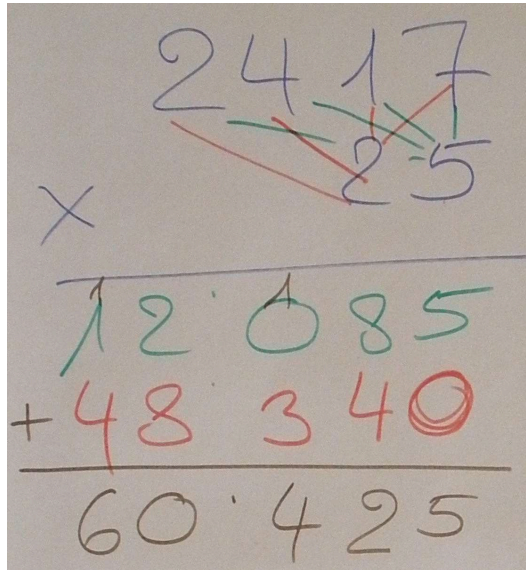 2417
25
×
12·085
+ 48·340
60·425